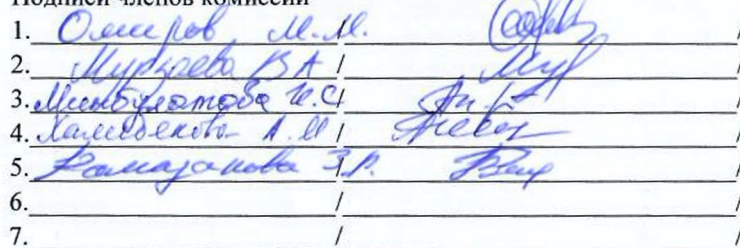 Подписи членов комиссии
1. Омаров М.М. / /
2. Муркаева В А / /
3. Минбулатова И.С / /
4. Халибекова А.М / /
5. Рамазанова З.Р. / /
6. / /
7. / /